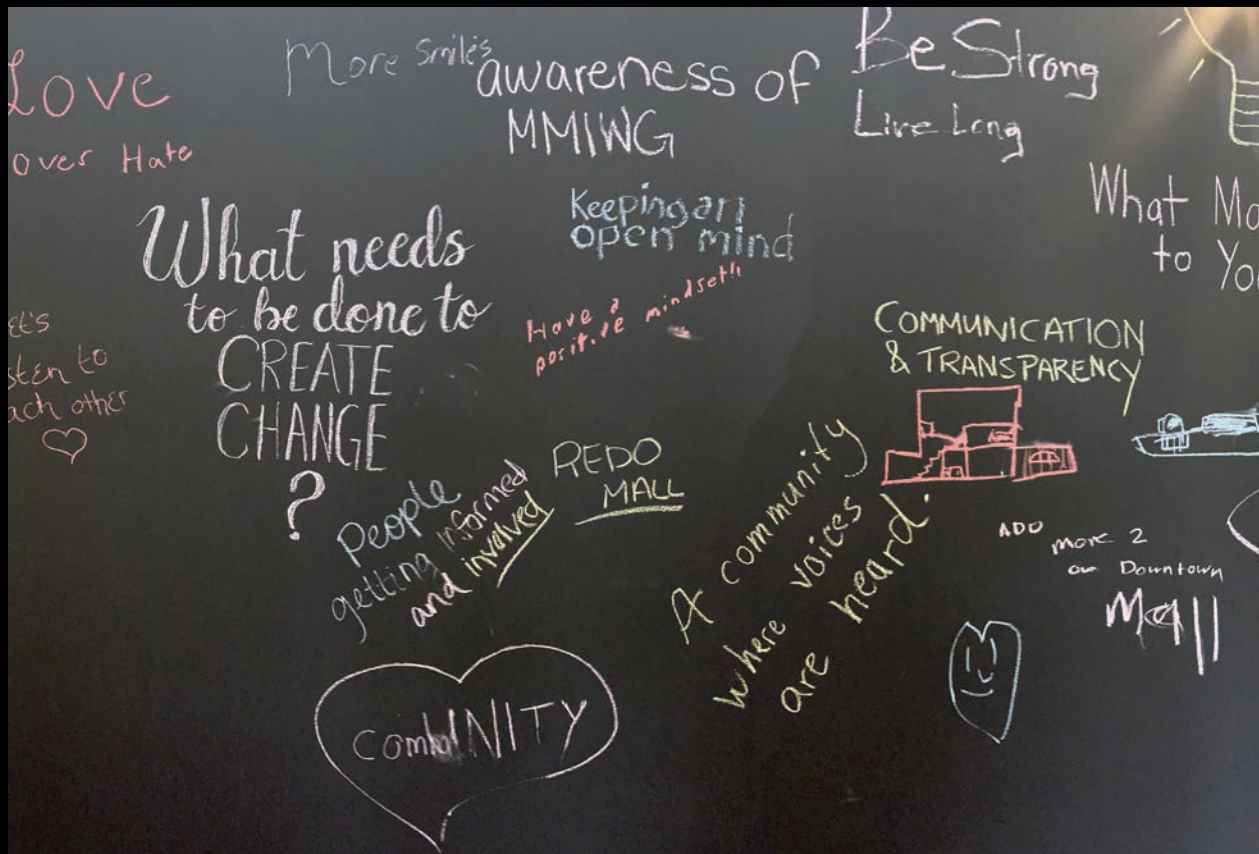 Love
over Hate
More Smiles
awareness of
MMIWG
Be Strong
Live Long
What
to
What needs
to be done to
CREATE
CHANGE
?
Keeping an
open mind
Have a
positive mindset!!
to
other
♡
COMMUNICATION
& TRANSPARENCY
REDO
MALL
People
getting informed
and involved
A community
where voices
are heard.
ADD
more 2
our Downtown
Mall
commUNITY